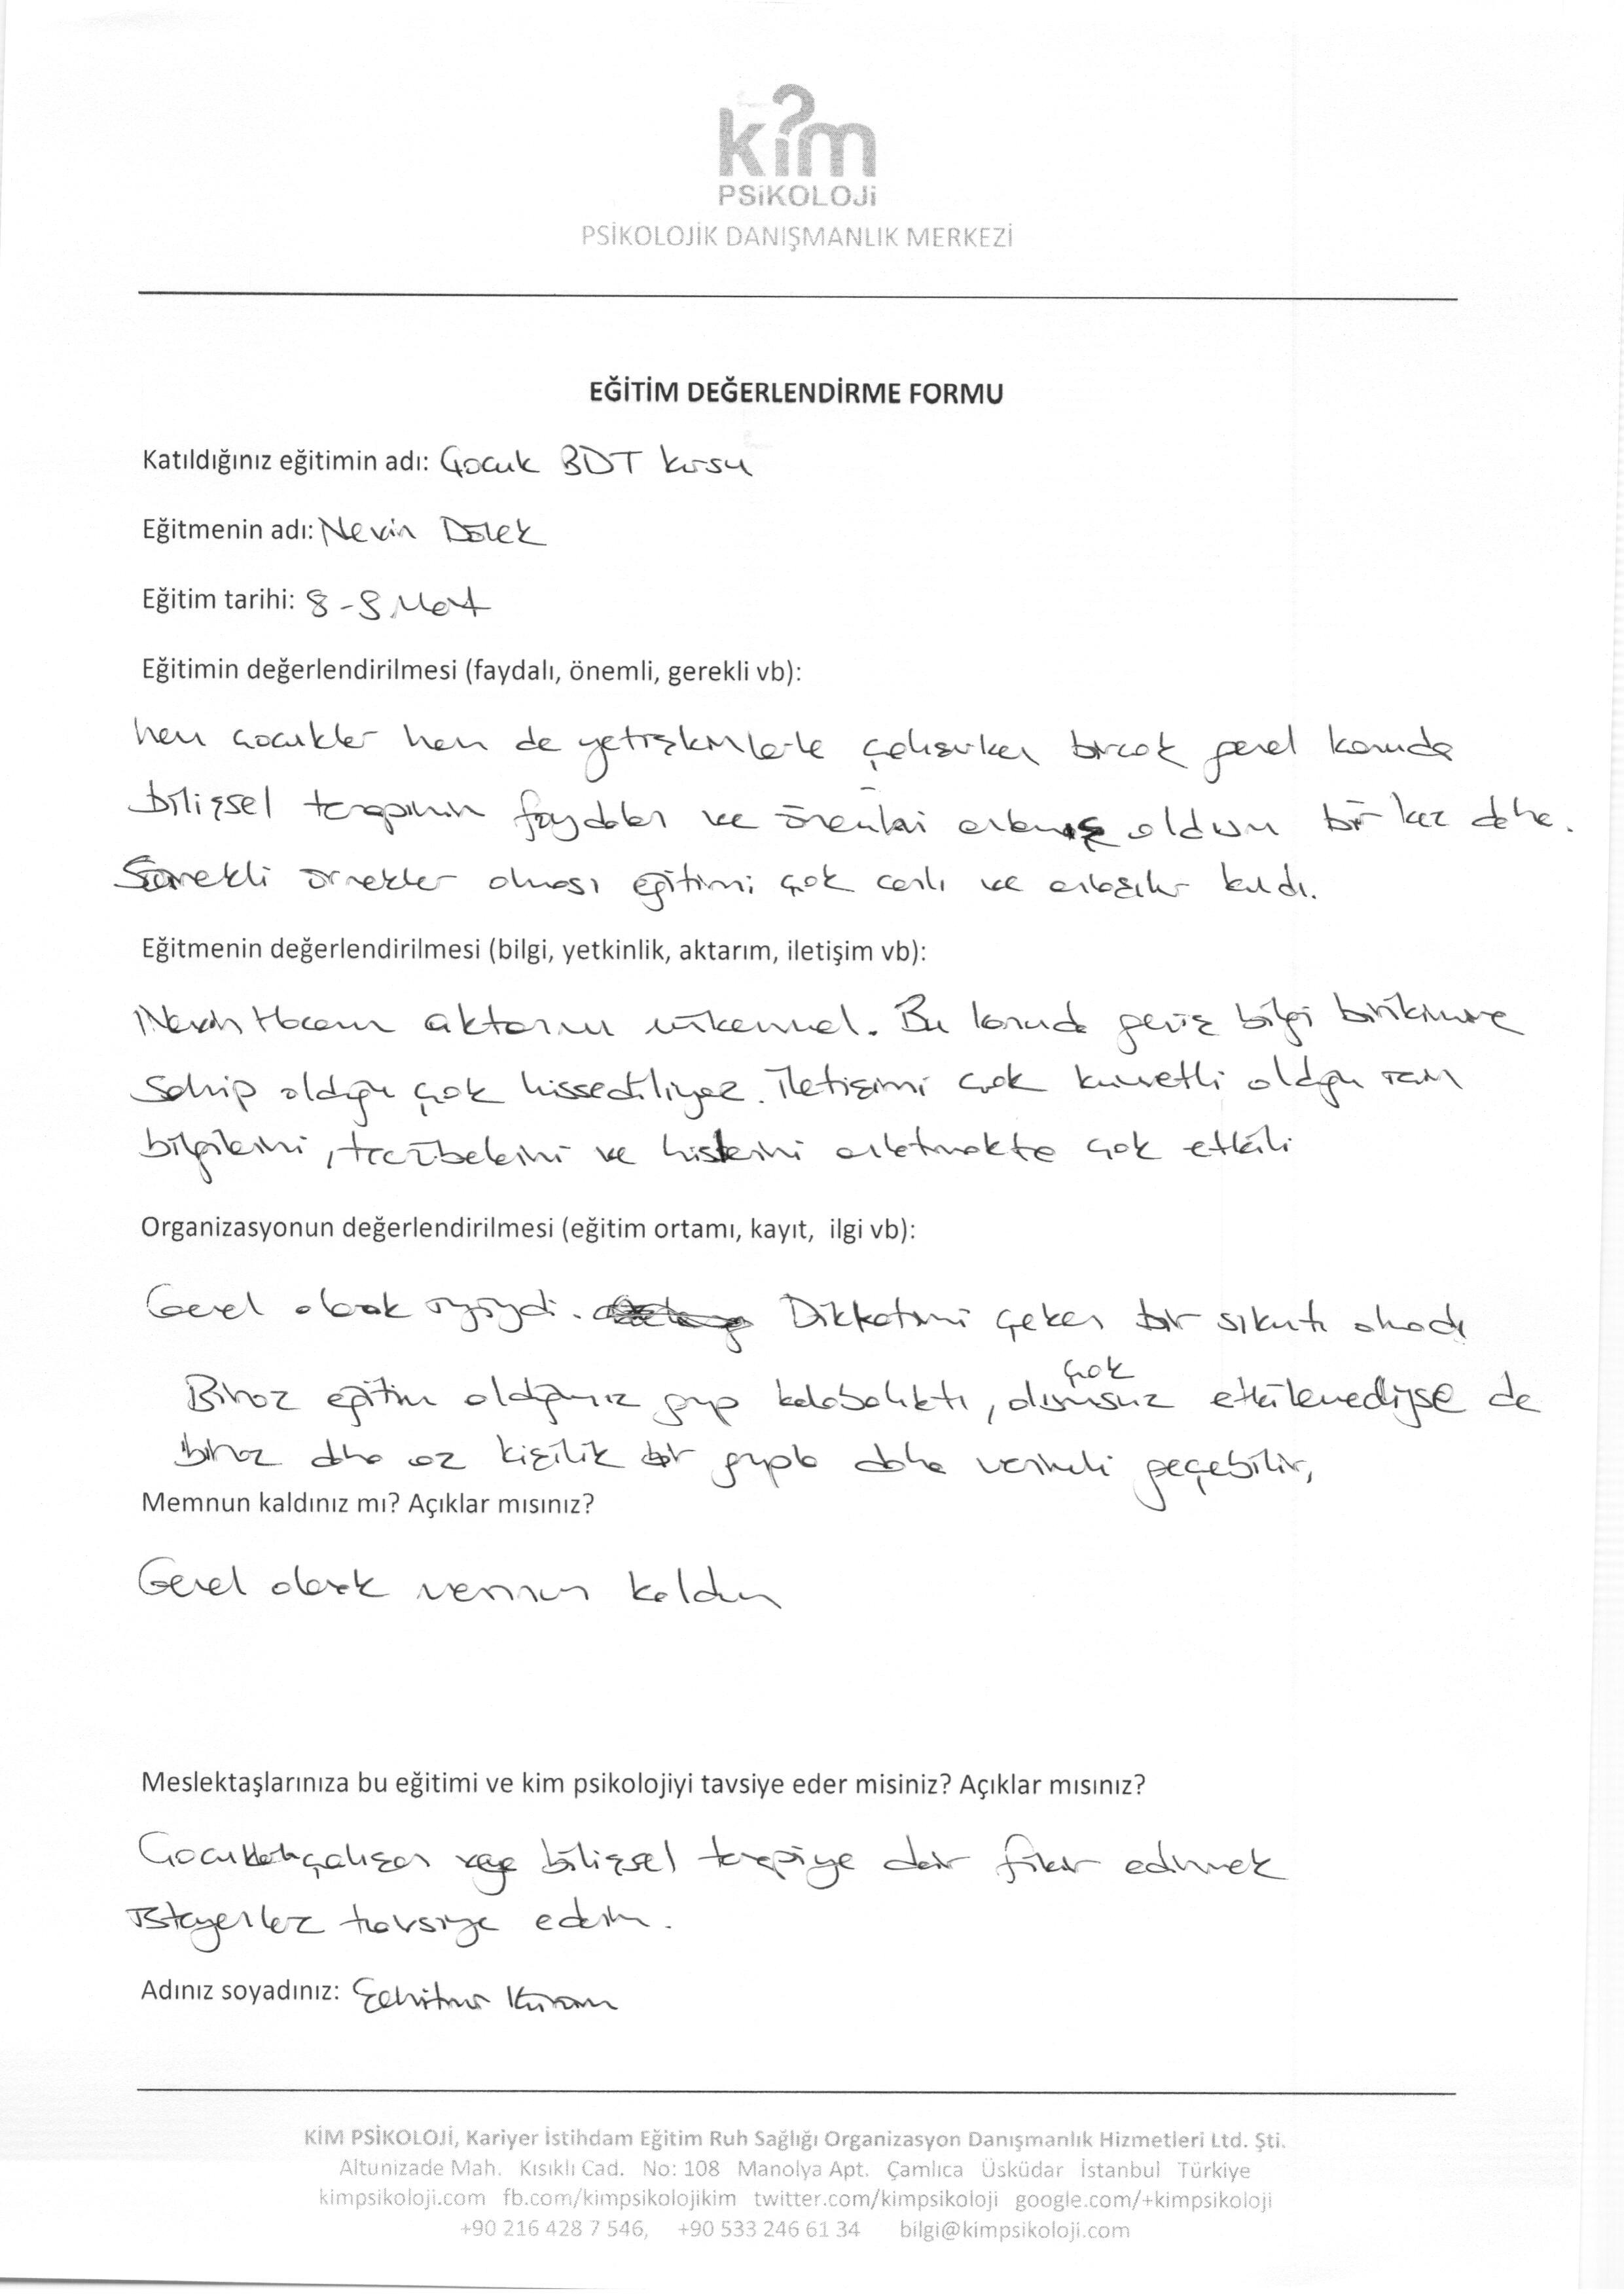 kim
PSiKOLOJi
PSİKOLOJİK DANIŞMANLIK MERKEZİ
EĞİTİM DEĞERLENDİRME FORMU
Katıldığınız eğitimin adı: Çocuk BDT kursu
Eğitmenin adı: Nevin Dölek
Eğitim tarihi: 8-9 Mart
Eğitimin değerlendirilmesi (faydalı, önemli, gerekli vb):
hem çocuklar hem de yetişkinlerle çalışırken birçok genel konuda
bilişsel terapinin faydaları ve önemini anlamış oldum bir kez daha.
Sürekli örnekler olması eğitimi çok canlı ve anlaşılır kıldı.
Eğitmenin değerlendirilmesi (bilgi, yetkinlik, aktarım, iletişim vb):
Nevin Hocam aktarımı mükemmel. Bu konuda geniş bilgi birikimine
sahip olduğu çok hissediliyor. İletişimi çok kuvvetli olduğu için
bilgilerini, tecrübelerini ve hislerini anlatmakta çok etkili
Organizasyonun değerlendirilmesi (eğitim ortamı, kayıt, ilgi vb):
Genel olarak iyiydi. Dikkatimi çeken bir sıkıntı olmadı
Biraz eğitim olduğumuz grup kalabalıktı, olumsuz çok etkilemediyse de
biraz daha az kişilik bir grupla daha verimli geçebilir,
Memnun kaldınız mı? Açıklar mısınız?
Genel olarak memnun kaldım
Meslektaşlarınıza bu eğitimi ve kim psikolojiyi tavsiye eder misiniz? Açıklar mısınız?
Çocuklarla çalışan veya bilişsel terapiye dair fikir edinmek
isteyenlere tavsiye ederim.
Adınız soyadınız:
KİM PSİKOLOJİ, Kariyer İstihdam Eğitim Ruh Sağlığı Organizasyon Danışmanlık Hizmetleri Ltd. Şti.
Altunizade Mah. Kısıklı Cad. No: 108 Manolya Apt. Çamlıca Üsküdar İstanbul Türkiye
kimpsikoloji.com fb.com/kimpsikolojikim twitter.com/kimpsikoloji google.com/+kimpsikoloji
+90 216 428 7 546, +90 533 246 61 34 bilgi@kimpsikoloji.com